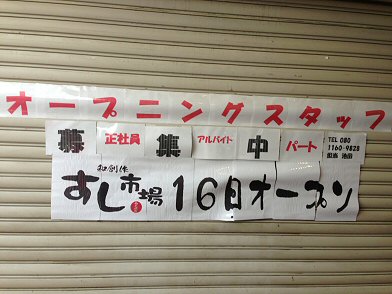 オープニングスタッフ
募 正社員 集 アルバイト 中 パート
TEL 080
1160-9828
担当 池田
和創作
すし市場 16日オープン